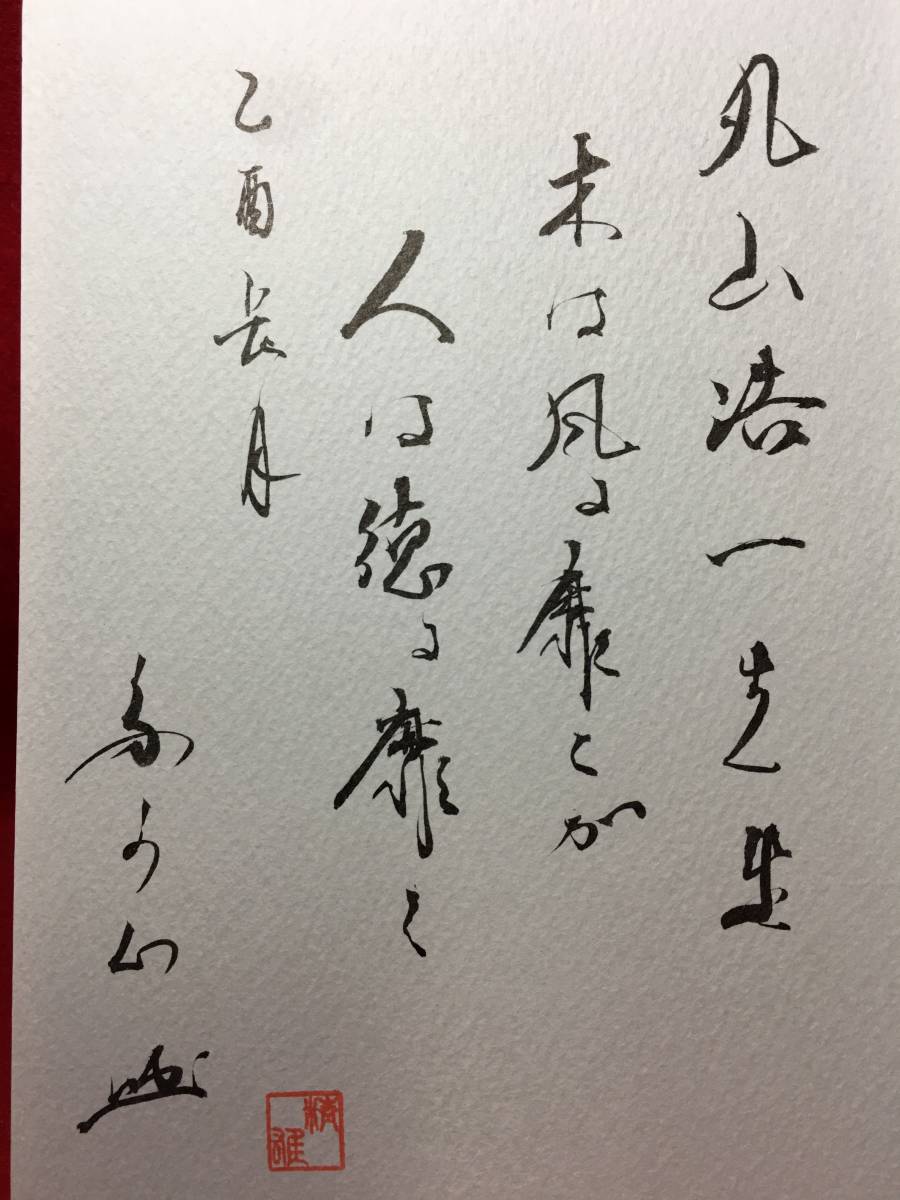 丸山浩一先生
木は風に靡くが
人は徳に靡く
乙酉長月